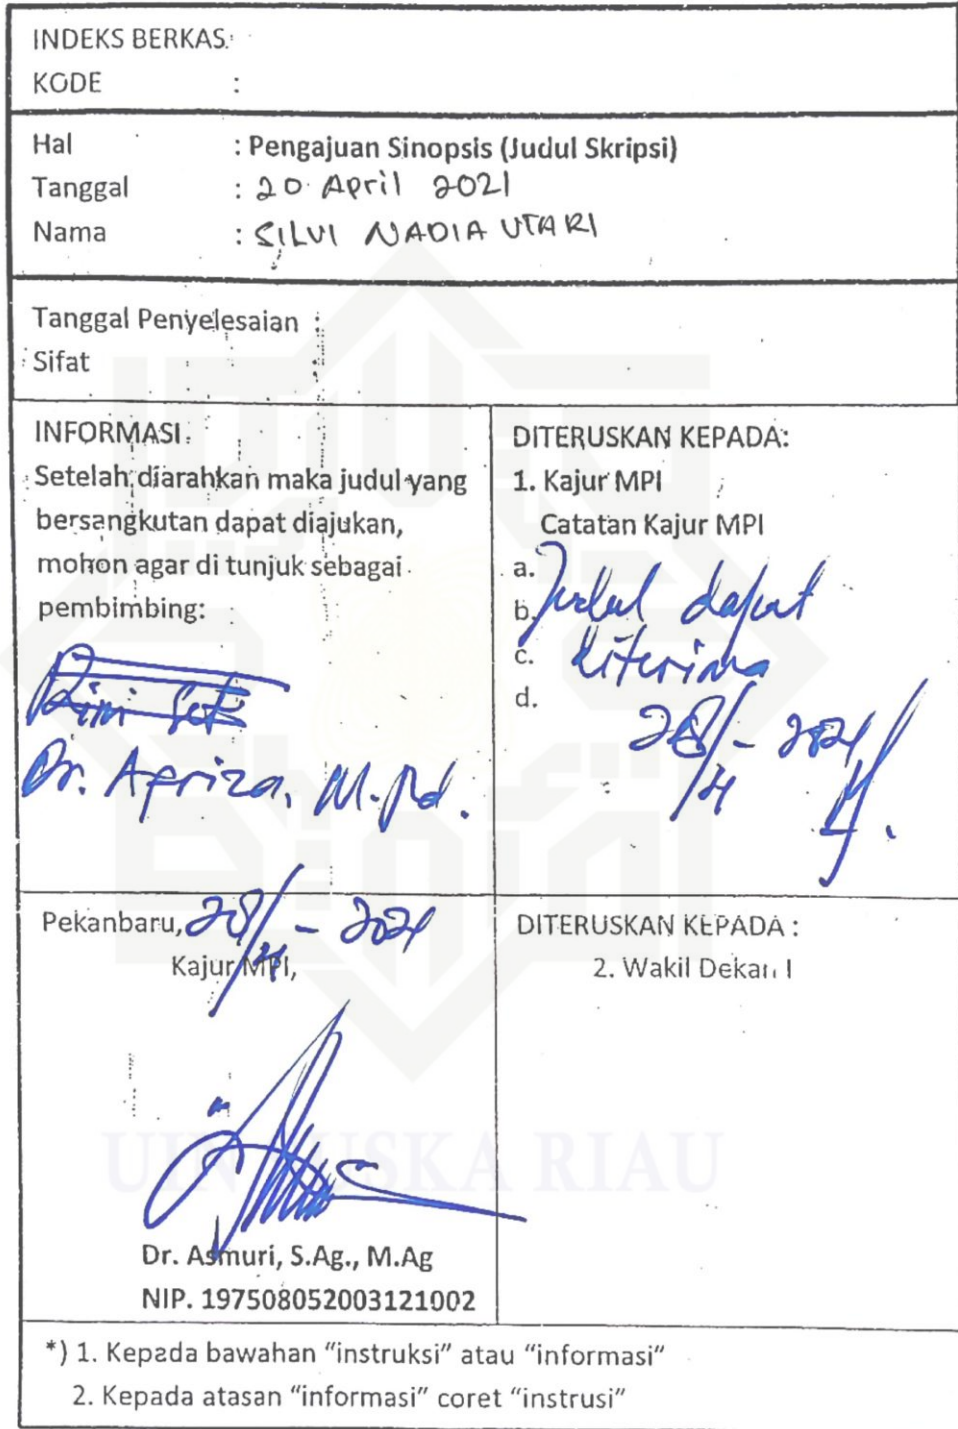 INDEKS BERKAS:
KODE :
Hal : Pengajuan Sinopsis (Judul Skripsi)
Tanggal : 20 April 2021
Nama : SILVI NADIA UTARI
Tanggal Penyelesaian :
Sifat :
INFORMASI:
Setelah diarahkan maka judul yang
bersangkutan dapat diajukan,
mohon agar di tunjuk sebagai
pembimbing:
Dr. Afriza, M.Pd.
DITERUSKAN KEPADA:
1. Kajur MPI
Catatan Kajur MPI
a.
b. Judul dapat
c. diterima
d.
28/4 - 2021
Pekanbaru, 28/4 - 2021
Kajur MPI,
Dr. Asmuri, S.Ag., M.Ag
NIP. 197508052003121002
DITERUSKAN KEPADA :
2. Wakil Dekan I
UIN SUSKA RIAU
*) 1. Kepada bawahan “instruksi” atau “informasi”
2. Kepada atasan “informasi” coret “instrusi”